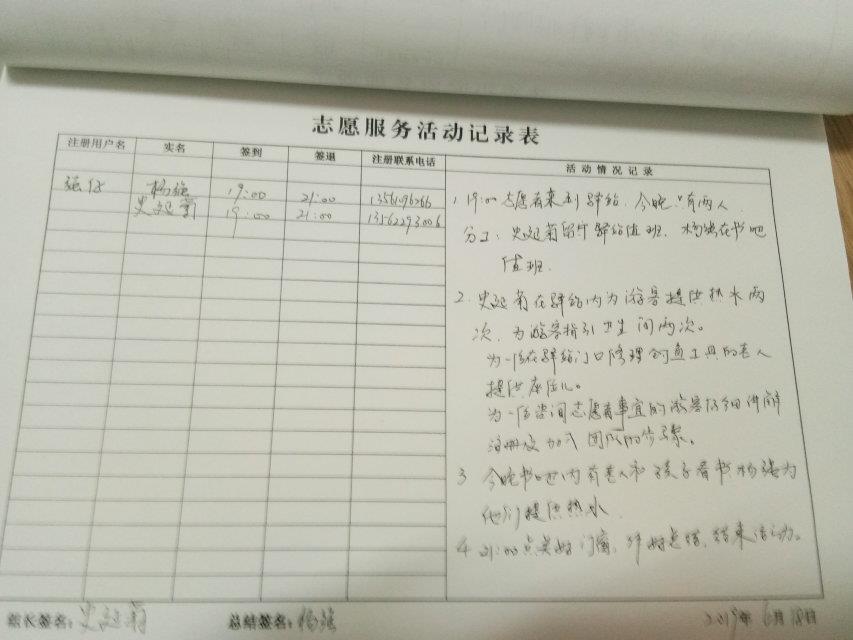 志愿服务活动记录表
注册用户名 实名 签到 签退 注册联系电话 活动情况记录
杨强 19:00 21:00
史延菊 19:00 21:00 13562293006
1, 19:00志愿者来到驿站,今晚只有两人
分工:史延菊留守驿站值班,杨强在书吧
值班.
2. 史延菊在驿站内为游客提供热水两
次,为游客指引卫生间两次。
为一位在驿站门口修理钓鱼工具的老人
提供座位。
为一位咨询志愿者事宜的游客仔细讲解
注册及加入团队的步骤。
3 今晚书吧内有老人和孩子看书杨强为
他们提供热水.
4 21:00点关好门窗,锁结束活动。
站长签名:史延菊 总结签名:杨强 2019年6月18日